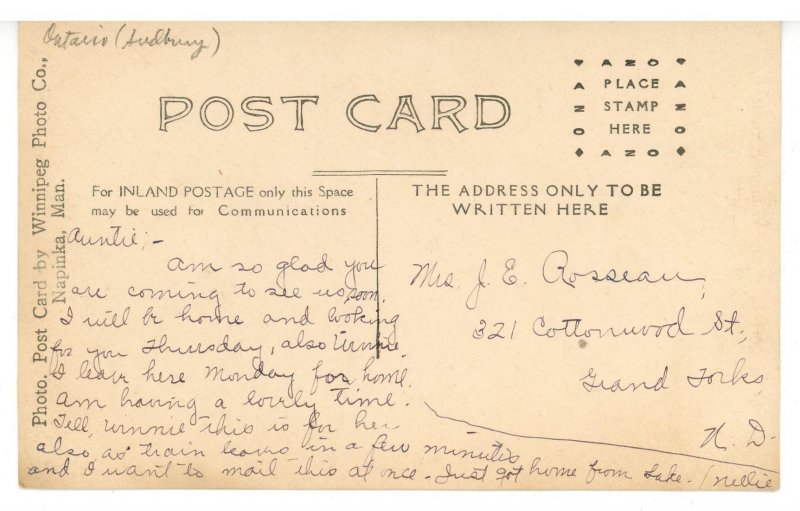 Ontario (Sudbury)
Photo. Post Card by Winnipeg Photo Co.,
Napinka, Man.
POST CARD
AZO
PLACE
STAMP
HERE
AZO
AZO
AZO
For INLAND POSTAGE only this Space
may be used for Communications
THE ADDRESS ONLY TO BE
WRITTEN HERE
Auntie;-
Am so glad you
are coming to see us, soon.
I will be home and looking
for you Thursday, also Winnie.
I leave here Monday for home.
Am having a lovely time.
Tell, Winnie this is for her
also, as train leaves in a few minutes
and I want to mail this at once. Just got home from Lake. / Nellie
Mrs. J. E. Rosseau,
321 Cottonwood St.,
Grand Forks,
N. D.